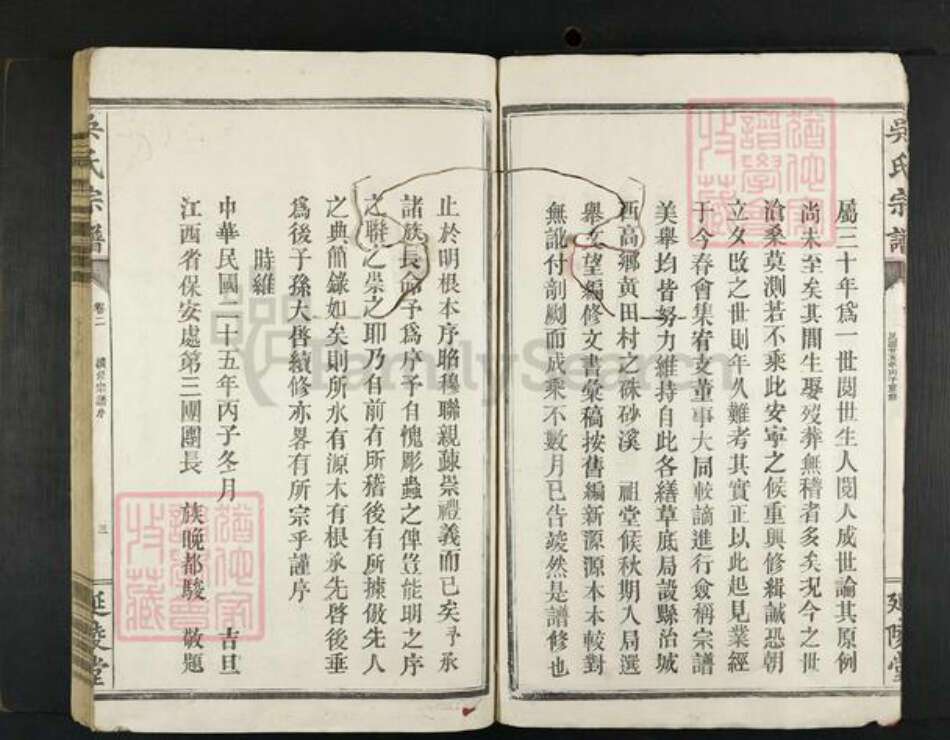 吳氏宗譜
延陵堂
屬三十年為一世閱世生人閱人成世論其原例
尚未至矣其間生娶歿葬無稽者多矣況今之世
滄桑莫測若不乘此安寧之候重興修緝誠恐朝
立夕改之世則年久難考其實正以此起見業經
于今春會集各支董事大同較論進行僉稱宗譜
美舉均皆努力維持自此各繕草底局設縣治城
西高鄉黃田村之硃砂溪 祖堂候秋期入局選
舉文望編修文書彙稿按舊編新源源本本較對
無訛付剞劂而成乘不數月已告竣然是譜修也
止於明根本序昭穆聯親疎崇禮義而已矣予承
諸族長命予為序予自愧彫蟲之俾豈能明之序
之聯之崇之耶乃自前有所稽後有所據倣先人
之典簡錄如矣則所水有源木有根承先啓後垂
為後子孫大啓續修亦畧有所宗乎謹序
時維
中華民國二十五年丙子冬月 吉旦
江西省保安處第三團團長 族晚都駿 敬題
吳氏宗譜
卷二
續修宗譜序
三
延陵堂
FamilySearch